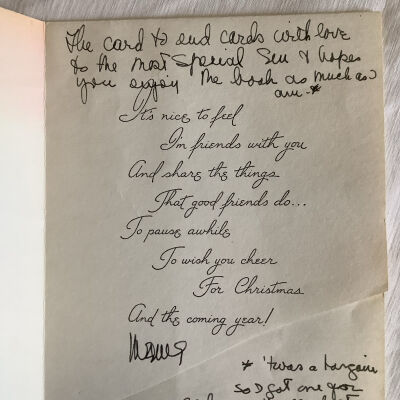 The card to end cards with love
to the most special Sen & hopes
you enjoy the book as much as I
am *
It's nice to feel
I'm friends with you
And share the things
That good friends do...
To pause awhile
To wish you cheer
For Christmas
And the coming year!
* 'twas a bargain
so I got one for